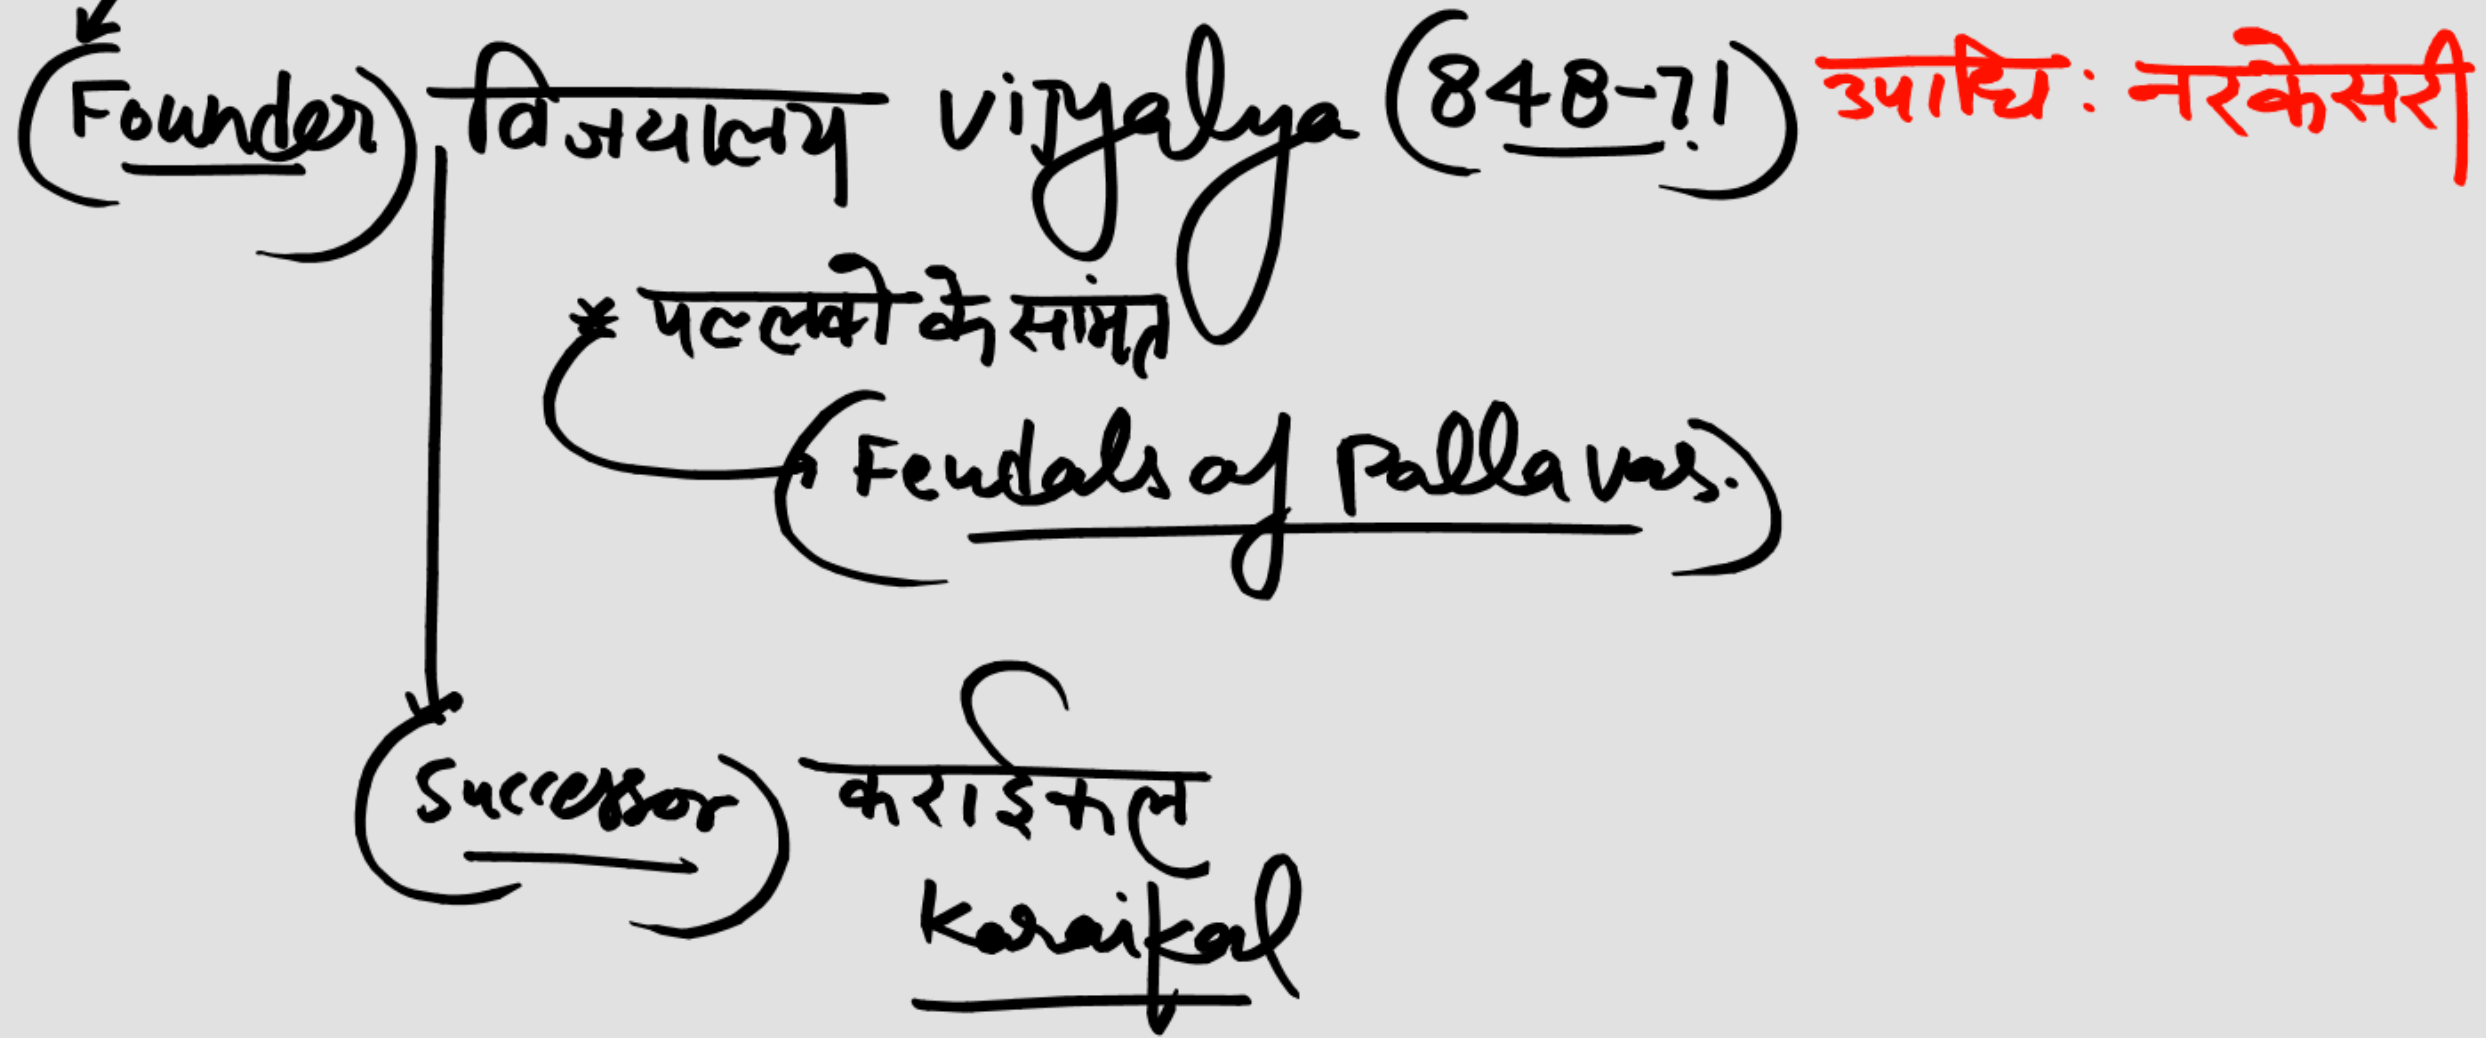 (Founder) विजयालय Vijyalya (848-71) उपाधि : नरकेसरी
* पल्लवो के सामंत
(Feudals of Pallavas.)
(Successor) कराईकल
Karaikal